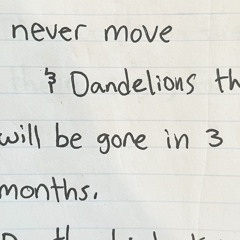 never move
& Dandelions th
will be gone in 3
months.